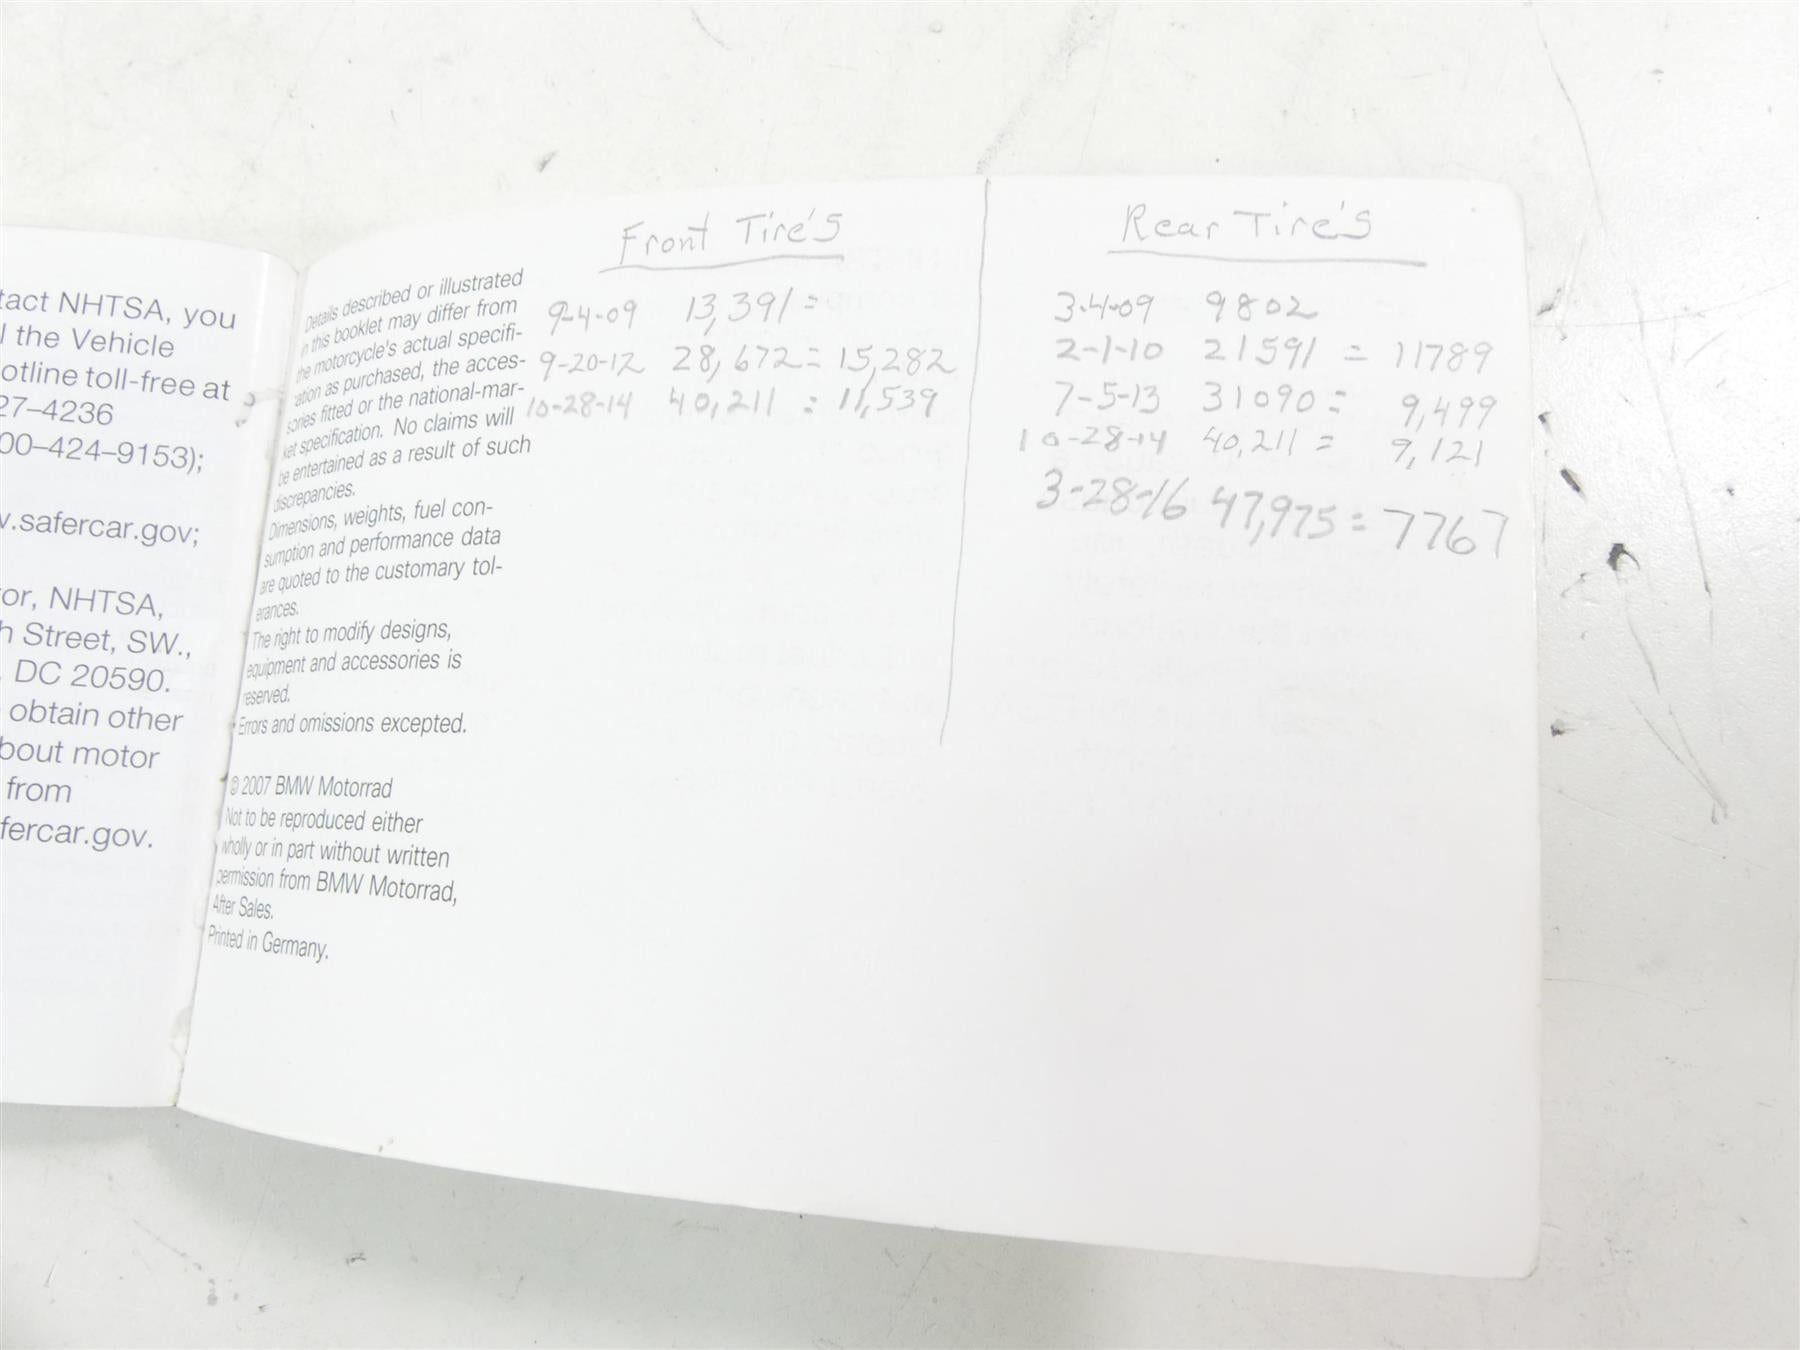 tact NHTSA, you
l the Vehicle
otline toll-free at
27–4236
00–424–9153);
w.safercar.gov;
or, NHTSA,
h Street, SW.,
, DC 20590.
obtain other
bout motor
from
fercar.gov.
Details described or illustrated
in this booklet may differ from
the motorcycle's actual specifi-
cation as purchased, the acces-
sories fitted or the national-mar-
ket specification. No claims will
be entertained as a result of such
discrepancies.
Dimensions, weights, fuel con-
sumption and performance data
are quoted to the customary tol-
erances.
The right to modify designs,
equipment and accessories is
reserved.
Errors and omissions excepted.
© 2007 BMW Motorrad
Not to be reproduced either
wholly or in part without written
permission from BMW Motorrad,
After Sales.
Printed in Germany.
Front Tire's
9-4-09 13,391 =
9-20-12 28,672 = 15,282
10-28-14 40,211 = 11,539
Rear Tire's
3-4-09 9802
2-1-10 21591 = 11789
7-5-13 31090 = 9,499
10-28-14 40,211 = 9,121
3-28-16 47,975 = 7767